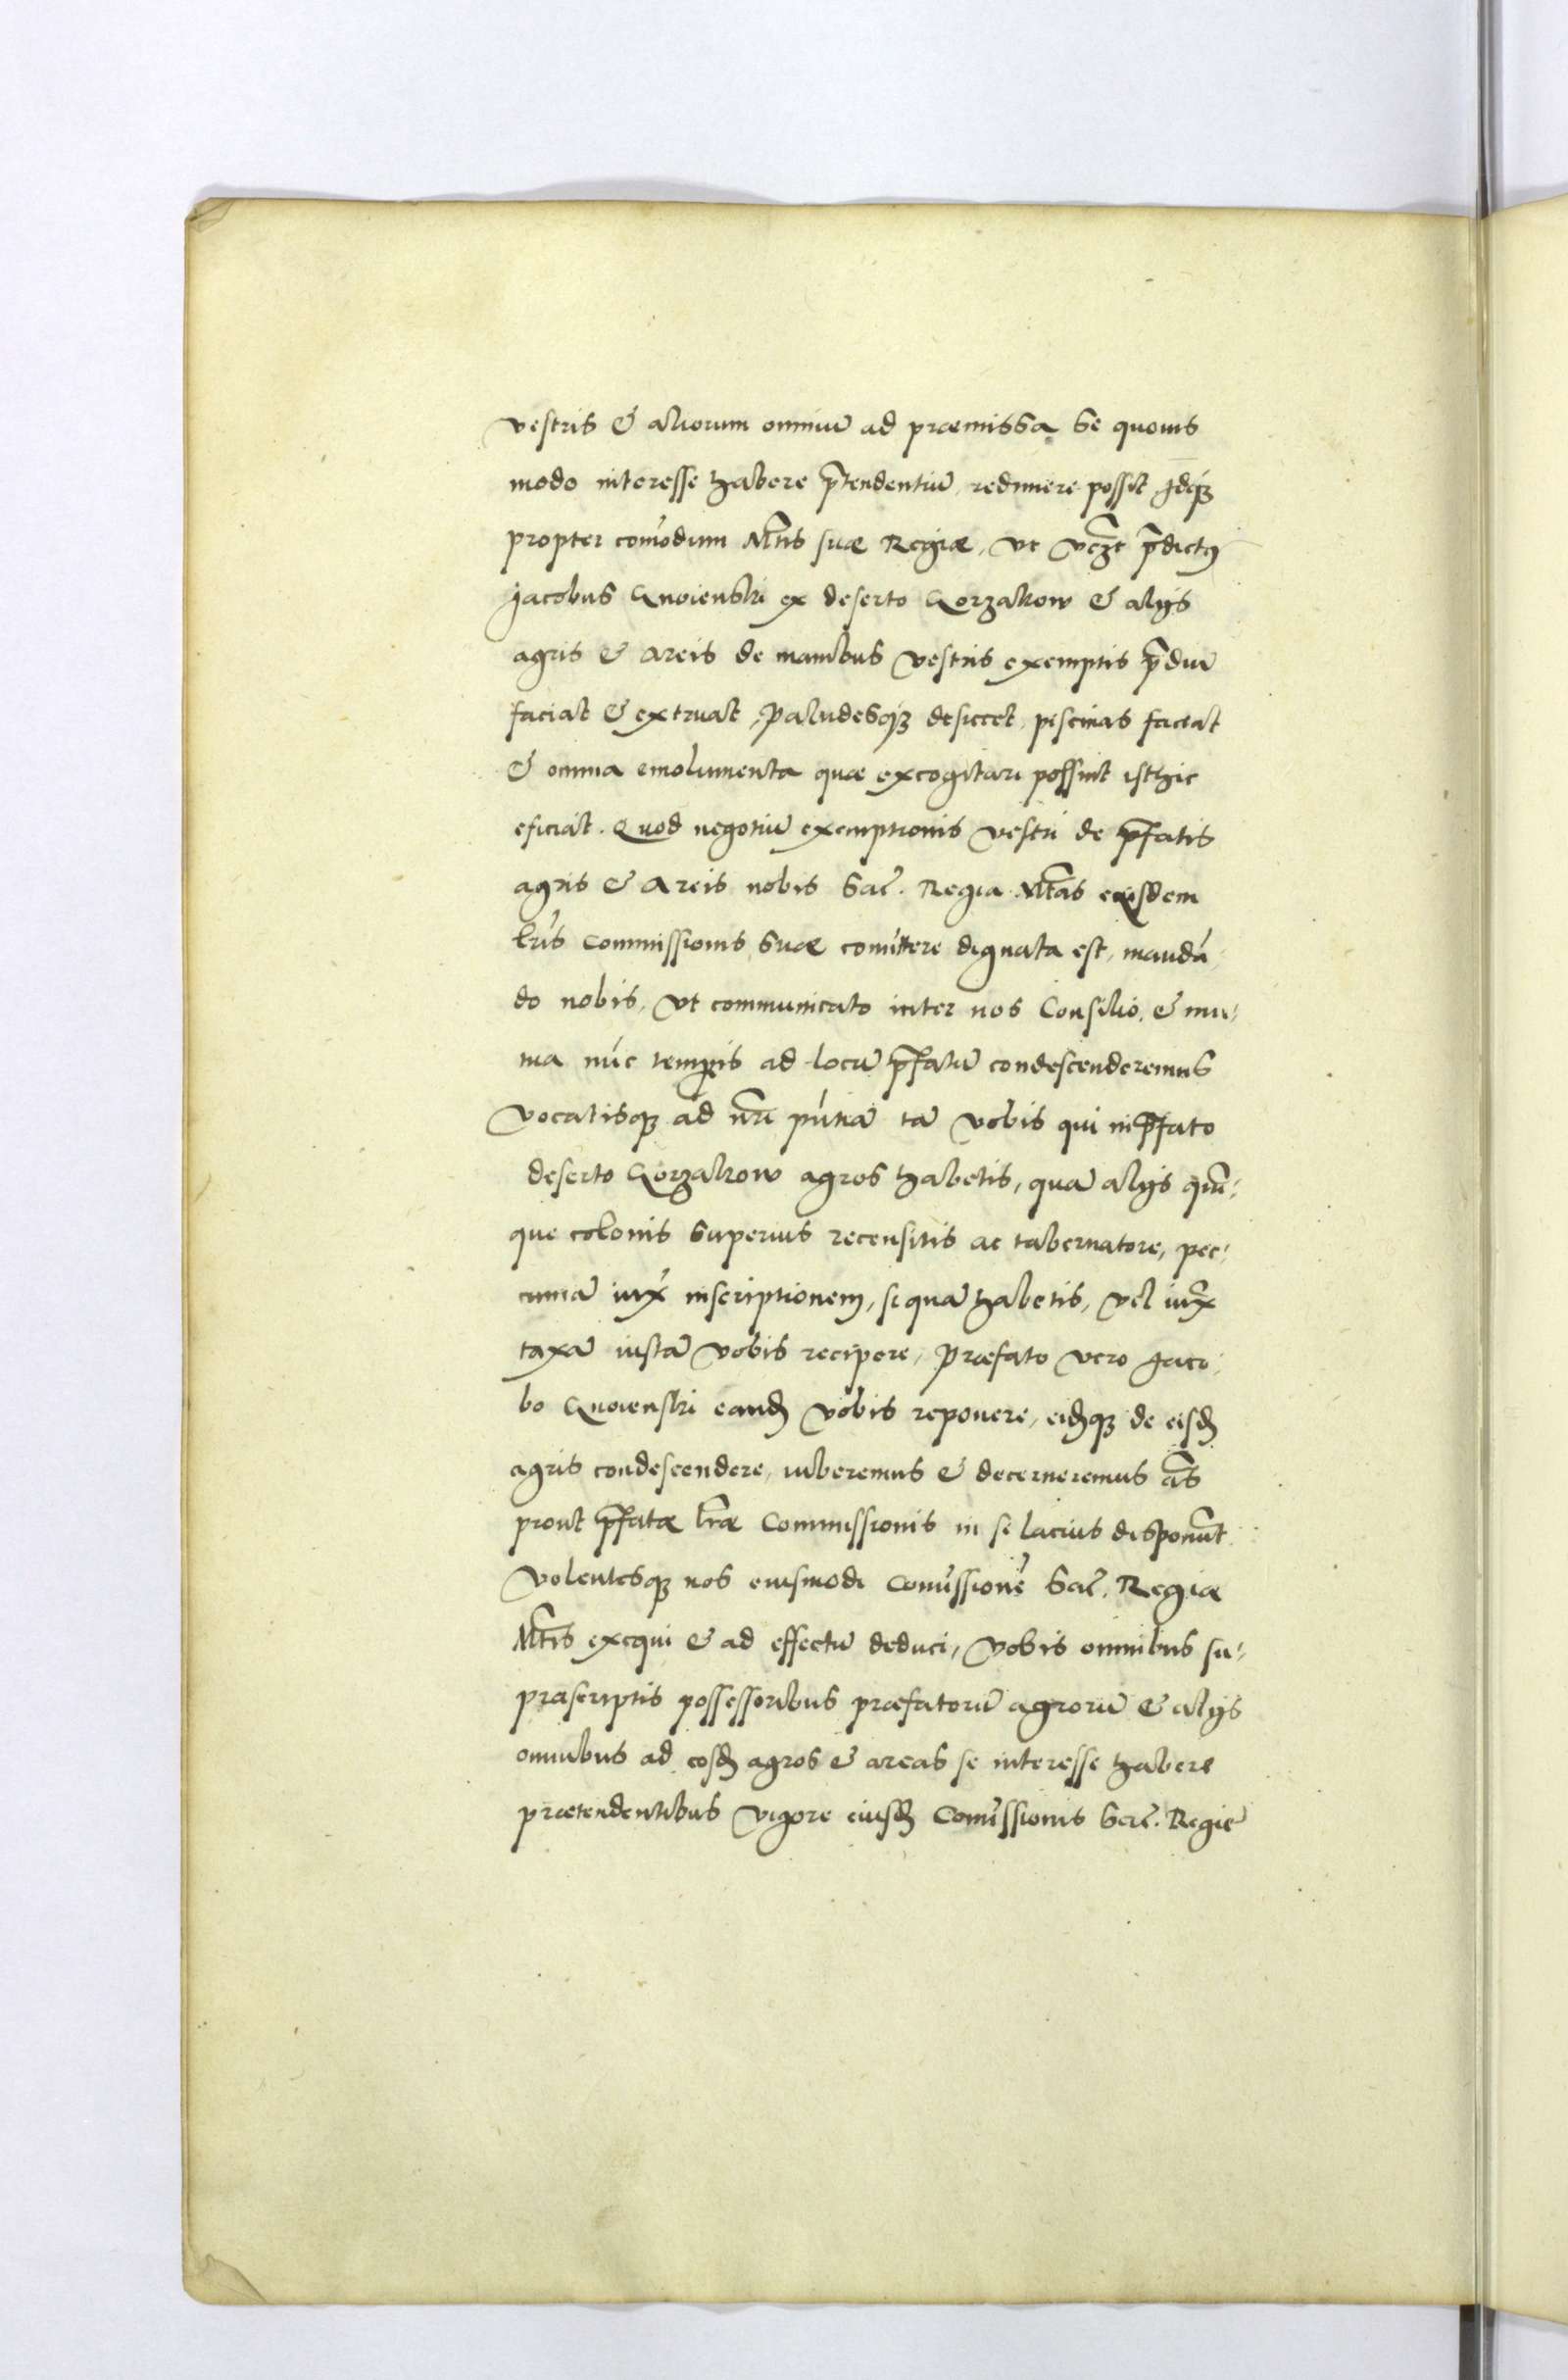 vestris & aliorum omniū ad præmissa se quovis
modo interesse habere p̄tendentiū, redimere possit Idq₃
propter com̄odum Mtis suæ Regiæ, ut p̄dictꝰ
Jacobus Gnoienski ex deserto Gorzakow & alijs
agris & areis de manibus vestris exemptis p̄diū
faciat & extruat, paludesq₃ desiccet, piscinas faciat
& omnia emolumenta quæ excogitari possint isthic
eficiat. Quod negotiū exemptionis vestri de p̄fatis
agris & Areis nobis Sac̄. Regia Mtas eiusdem
lr̄is Commissionis Suæ com̄ittere dignata est, mandā,
do nobis, ut communicato inter nos Consilio, &
nūc temp̱is ad locū p̄fatū condescenderemus
Vocatisq₃ ad nr̄i pn̄tiā tā vobis qui in p̄fato
deserto Gorzakow agros habetis, quā alijs quin-
que colonis superius recensitis ac tabernatore, pec-
cuniā iux̄ inscriptionem, si quā habetis, vel iux̄
taxā iustā vobis recipere, præfato vero Jaco-
bo Gnoienski eand̄ vobis reponere, eid̄q₃ de eisd̄
agris condescendere, iuberemus & decerneremus
prout p̄fatæ lr̄æ Commissionis in se latius disponūt
Volentesq₃ nos eiusmodi Com̄issionē Sac̄. Regiæ
Mtis exequi & ad effectū deduci, Vobis omnibus su-
præscriptis possessoribus præfatorū agrorū & alijs
omnibus ad eosd̄ agros & areas se interesse habere
prætendentibus vigore eiusd̄ Com̄issionis Sac̄. Regiæ